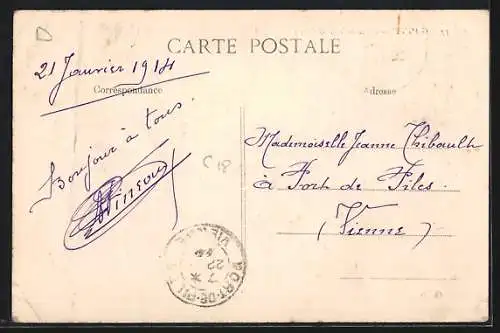 D
CARTE POSTALE
21 Janvier 1914
Correspondance
Adresse
Bonjour à tous.
C 18
Mademoiselle Jeanne Thibault
à Port de Piles.
(Vienne)
PORT-DE-PILES
VIENNE
22